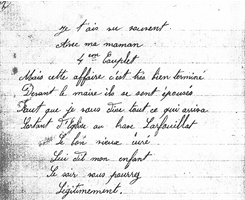 Je l'ai su souvent
Avec ma maman
4em Couplet
Mais cette affaire c'est très bien terminé
Devant le maire ils se sont épousés
Faut que je vous dise tout ce qui arriva
Sortant d'Eglise au bras Larfouillat
Le bon vieux curé
Lui dit mon enfant
Ce soir vous pourrez
Légitimement.